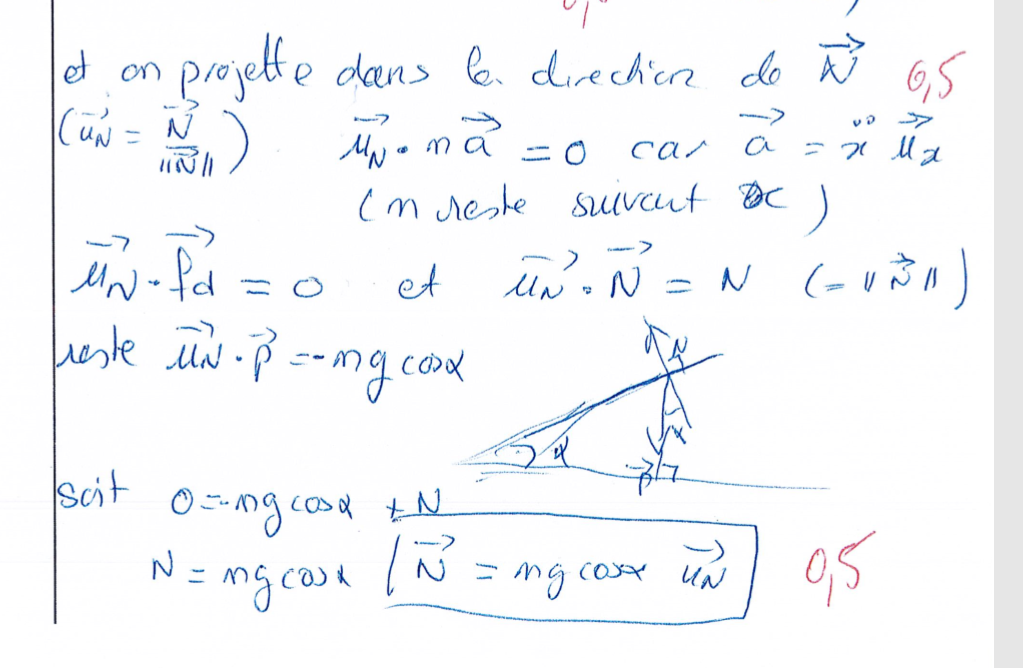 et on projette dans la direction de N⃗ 0,5
(u⃗N = N⃗ / ||N⃗||) u⃗N • m a⃗ = 0 car a⃗ = ẍ u⃗x
(m reste suivant x)
u⃗N • f⃗d = 0 et u⃗N • N⃗ = N (= ||N⃗||)
reste u⃗N • p⃗ = -mg cosα
N⃗
α
α
p⃗
soit 0 = -mg cosα + N
N = mg cosα / N⃗ = mg cosα u⃗N 0,5